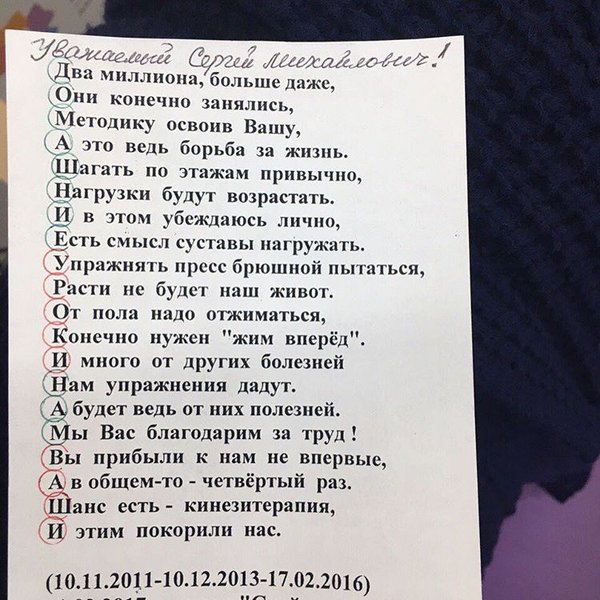 Уважаемый Сергей Михайлович!
Два миллиона, больше даже,
Они конечно занялись,
Методику освоив Вашу,
А это ведь борьба за жизнь.
Шагать по этажам привычно,
Нагрузки будут возрастать.
И в этом убеждаюсь лично,
Есть смысл суставы нагружать.
Упражнять пресс брюшной пытаться,
Расти не будет наш живот.
От пола надо отжиматься,
Конечно нужен "жим вперёд".
И много от других болезней
Нам упражнения дадут.
А будет ведь от них полезней.
Мы Вас благодарим за труд !
Вы прибыли к нам не впервые,
А в общем-то - четвёртый раз.
Шанс есть - кинезитерапия,
И этим покорили нас.
(10.11.2011-10.12.2013-17.02.2016)